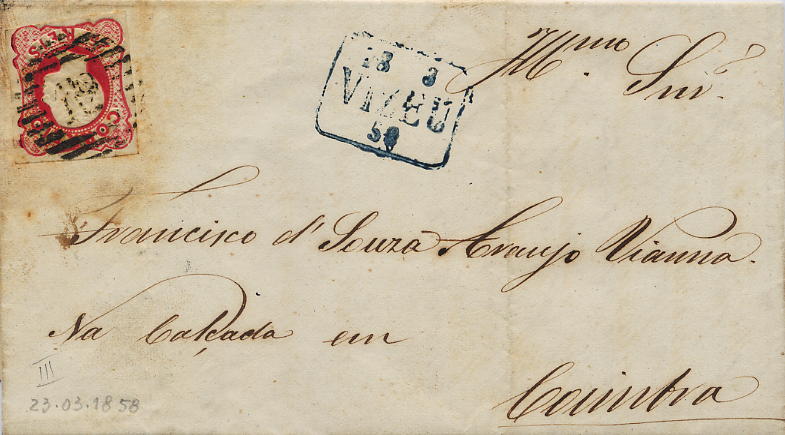 REIS
CORREIO
18 3
VIZEU
58
Illmo. Snr.
Francisco d'Souza Araujo Vianna.
Na Calçada em
Coimbra
III
23.03.1858